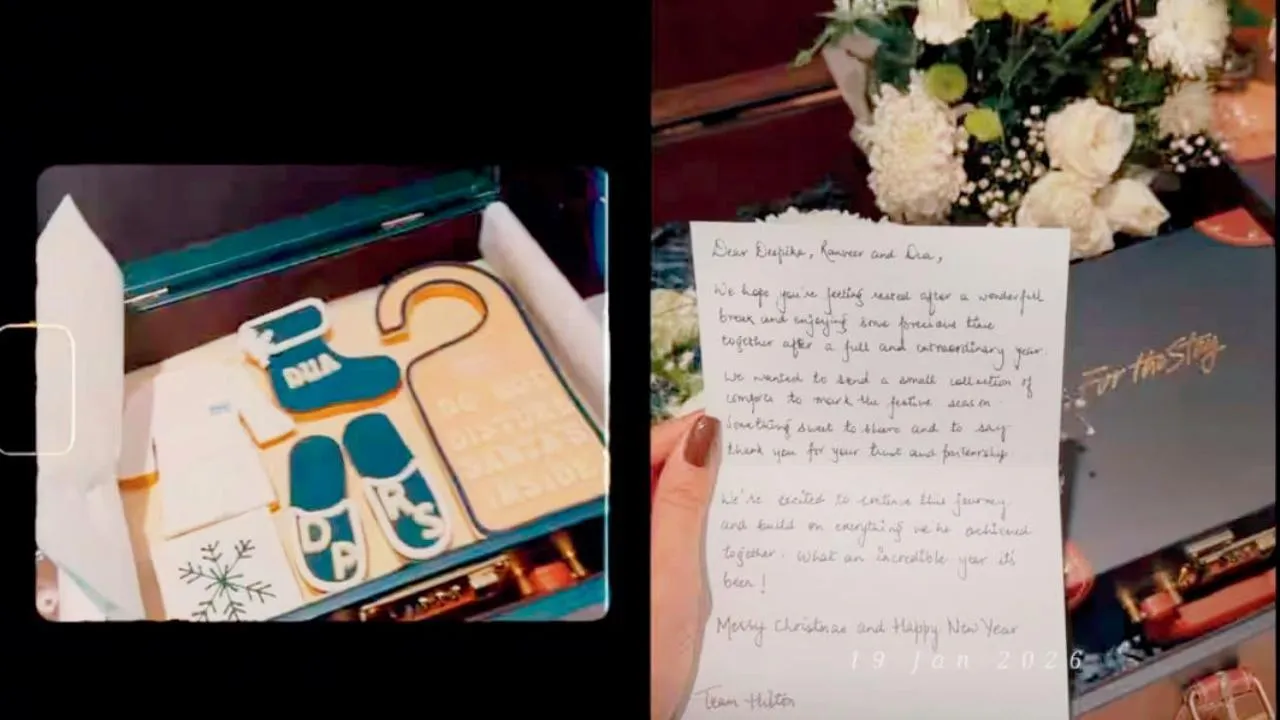 DUA
DP
RS
Dear Deepika, Ranveer and Dua,
We hope you're feeling rested after a wonderfull
break and enjoying some precious time
together after a full and extraordinary year.
We wanted to send a small collection of
comforts to mark the festive season.
Something sweet to share and to say
thank you for your trust and partnership
We're excited to continue this journey
and build on everything we've achieved
together. What an incredible year it's
been!
Merry Christmas and Happy New Year
Team Hilton
For the Stay
19 Jan 2026